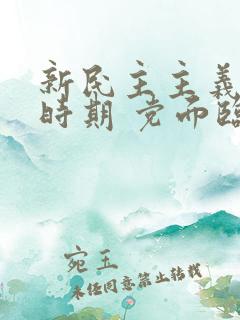 新民主主義
時期 党面臨
宛玉
未经同意禁止转载